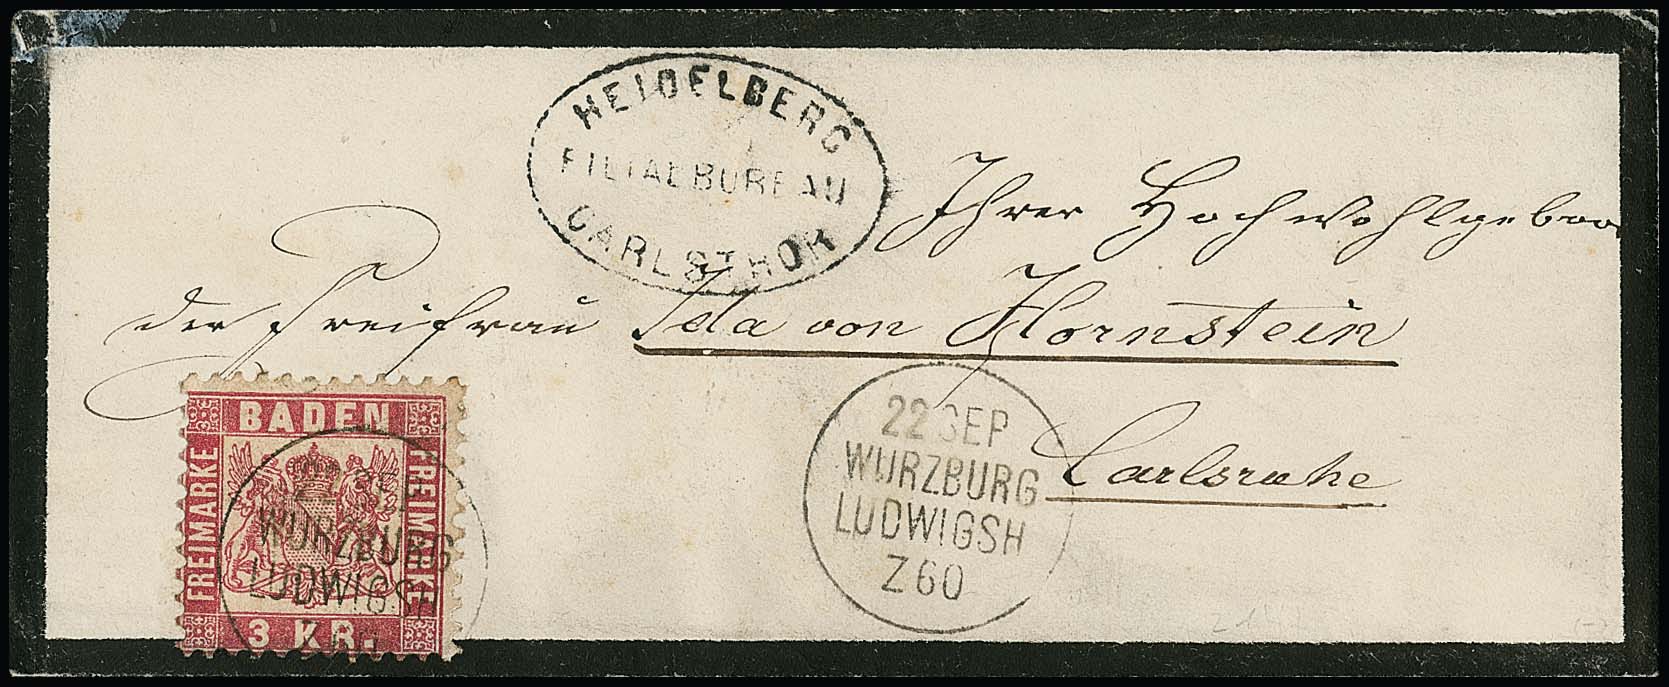 HEIDELBERG
FILIALBUREAU
CARLSTHOR
Ihrer Hochwohlgebor
der Freifrau Ida von Hornstein
Carlsruhe
22 SEP
WURZBURG
LUDWIGSH
Z60
BADEN
FREIMARKE
FREIMARKE
3 KR.
SEP
WURZBURG
LUDWIGSH
Z60